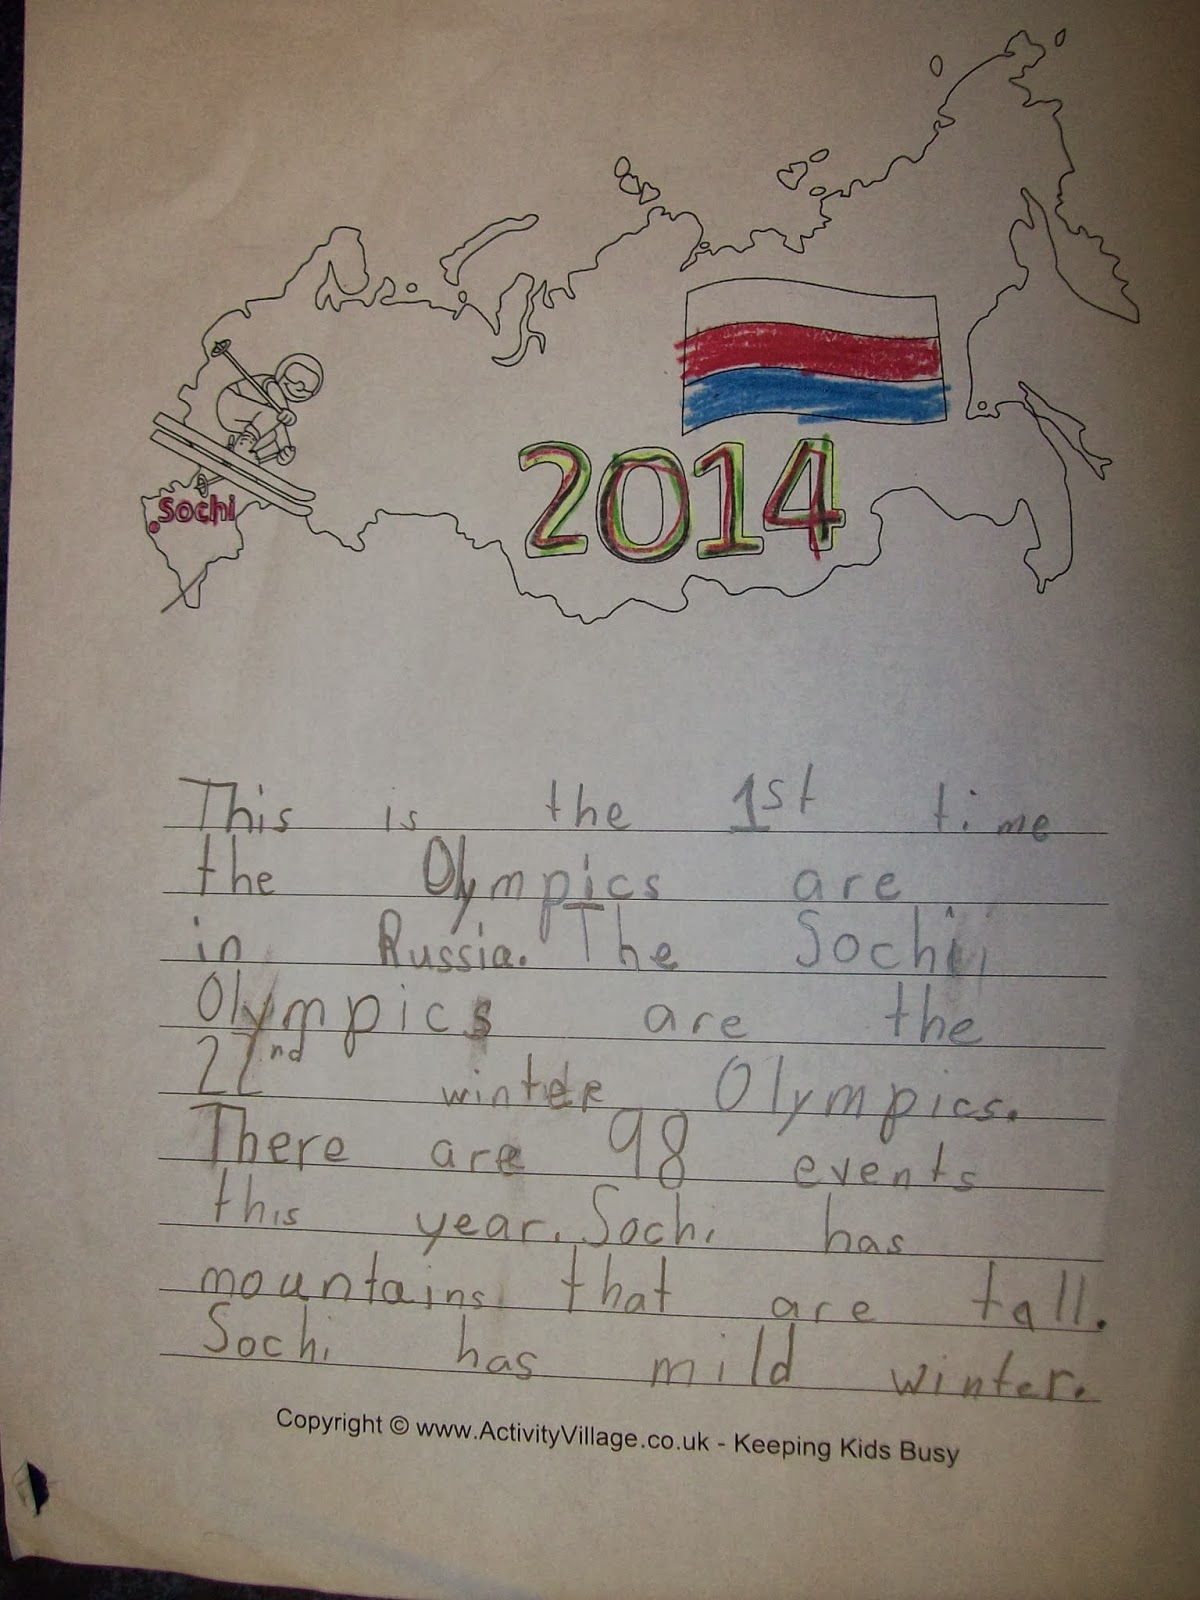 Sochi
2014
This is the 1st time
the Olympics are
in Russia. The Sochi
Olympics are the
22nd winter Olympics.
There are 98 events
this year. Sochi has
mountains that are tall.
Sochi has mild winter.
Copyright © www.ActivityVillage.co.uk - Keeping Kids Busy